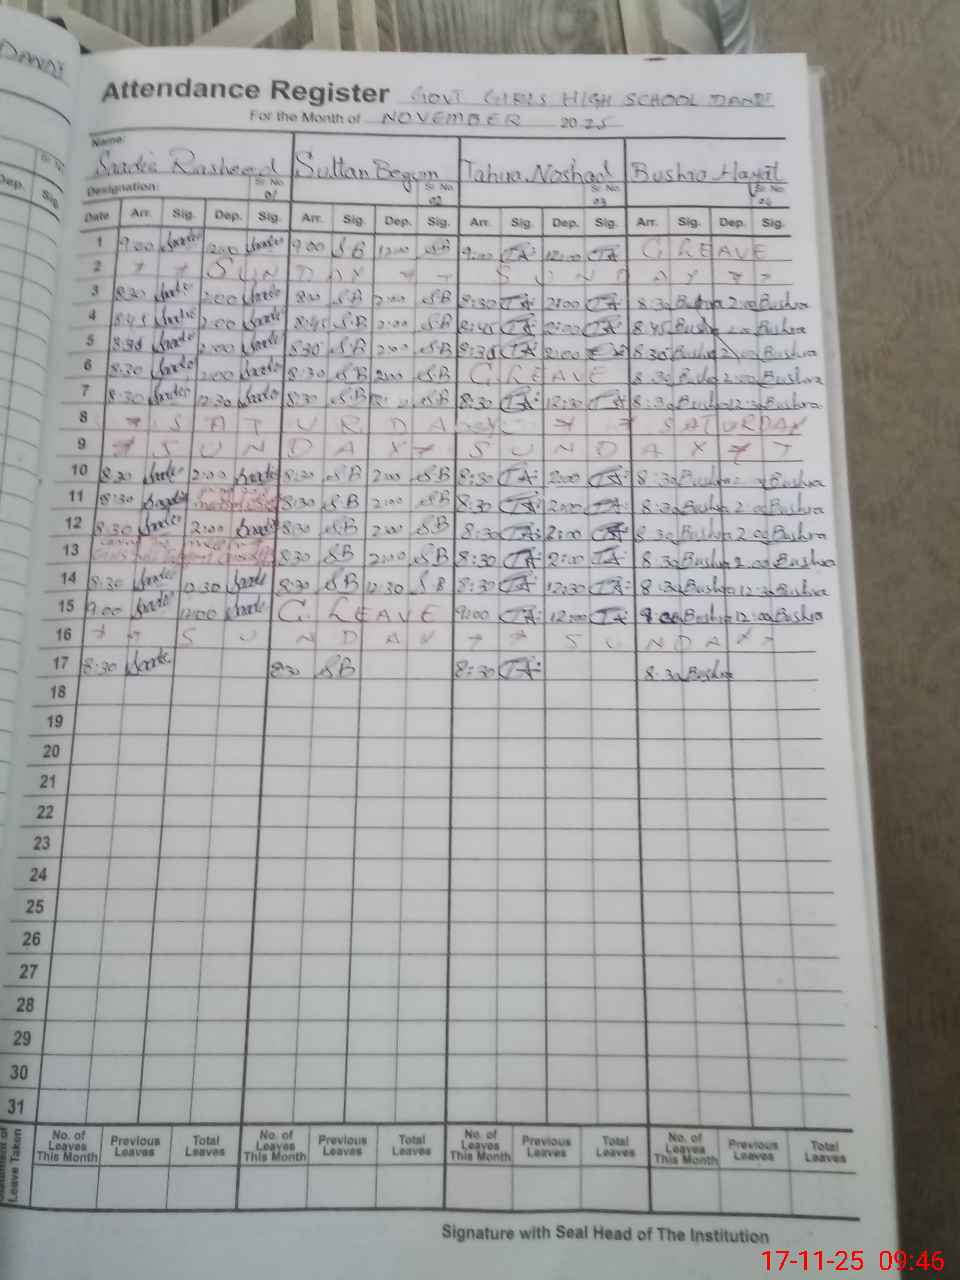 Attendance Register GOVT GIRLS HIGH SCHOOL DANDI
For the Month of NOVEMBER 2025
Name:
Saadia Rasheed Sultan Begum Tahira Noshad Bushra Hayat
Designation: Sr. No. 01 Sr. No. 02 Sr. No. 03 Sr. No. 04
Date Arr. Sig. Dep. Sig. Arr. Sig. Dep. Sig. Arr. Sig. Dep. Sig. Arr. Sig. Dep. Sig.
1 9:00 12:00 9:00 SB 12:00 SB 9:00 TA 12:00 TA C LEAVE
2 SUNDAY SUNDAY
3 8:30 2:00 8:30 SB 2:00 SB 8:30 TA 2:00 TA 8:30 Bushra 2:00 Bushra
4 8:45 2:00 8:45 SB 2:00 SB 8:45 TA 2:00 TA 8:45 Bushra 2:00 Bushra
5 8:30 2:00 8:30 SB 2:00 SB 8:30 TA 2:00 8:30 Bushra 2:00 Bushra
6 8:30 2:00 8:30 SB 2:00 SB C LEAVE 8:30 Bushra 2:00 Bushra
7 8:30 12:30 8:30 SB SB 8:30 TA 12:30 TA 8:30 Bushra 12:30 Bushra
8 SATURDAY SATURDAY
9 SUNDAY SUNDAY
10 8:30 2:00 8:30 SB 2:00 SB 8:30 TA 2:00 TA 8:30 Bushra 2:00 Bushra
11 8:30 8:30 SB 2:00 SB 8:30 TA 2:00 TA 8:30 Bushra 2:00 Bushra
12 8:30 2:00 8:30 SB 2:00 SB 8:30 TA 2:00 TA 8:30 Bushra 2:00 Bushra
13 8:30 SB 2:00 SB 8:30 TA 2:00 TA 8:30 Bushra 2:00 Bushra
14 8:30 12:30 8:30 SB 12:30 SB 8:30 TA 12:30 TA 8:30 Bushra 12:30 Bushra
15 9:00 12:00 C. LEAVE 9:00 TA 12:00 TA 9:00 Bushra 12:00 Bushra
16 SUNDAY SUNDAY
17 8:30 8:30 SB 8:30 TA 8:30 Bushra
18
19
20
21
22
23
24
25
26
27
28
29
30
31
Leave Taken No. of Leaves This Month Previous Leaves Total Leaves No. of Leaves This Month Previous Leaves Total Leaves No. of Leaves This Month Previous Leaves Total Leaves No. of Leaves This Month Previous Leaves Total Leaves
Signature with Seal Head of The Institution
17-11-25 09:46